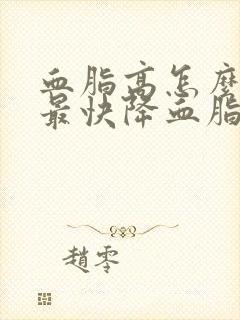 血脂高怎麼
最快降血脂
趙零